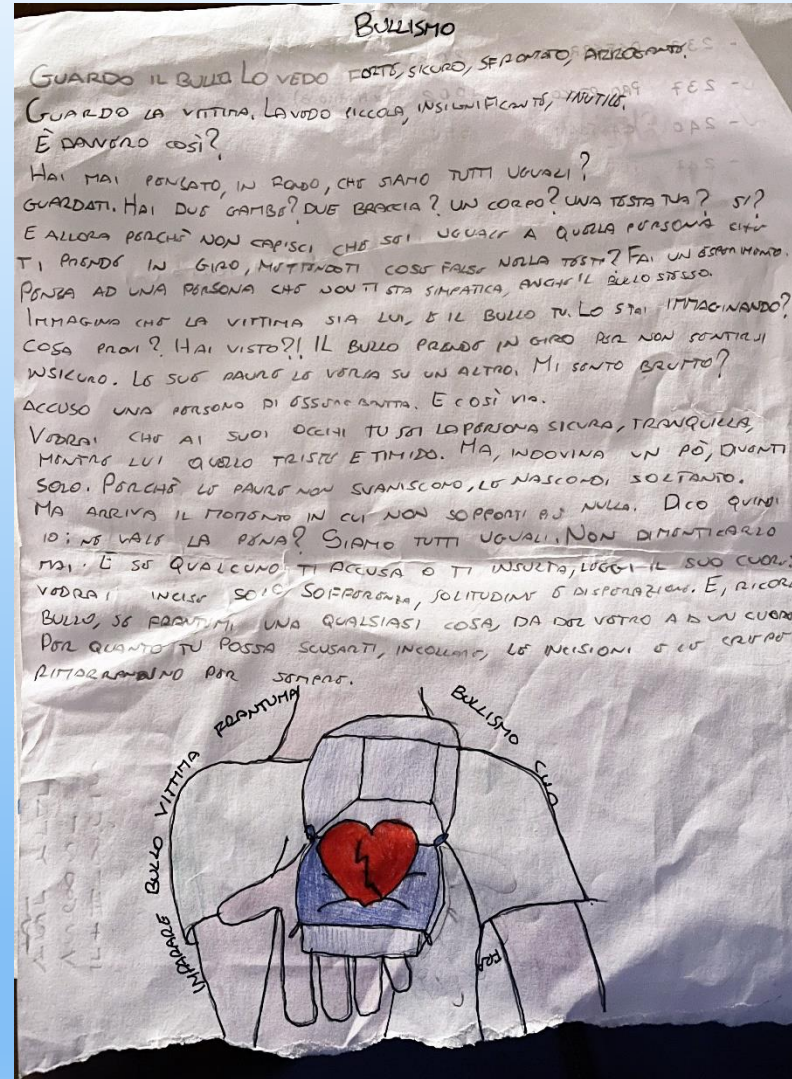 BULLISMO
GUARDO IL BULLO LO VEDO FORTE, SICURO, SFRONTATO, ARROGANTE.
GUARDO LA VITTIMA. LA VEDO PICCOLA, INSIGNIFICANTE, INUTILE.
È DAVVERO COSÌ?
HAI MAI PENSATO, IN FONDO, CHE SIAMO TUTTI UGUALI?
GUARDATI. HAI DUE GAMBE? DUE BRACCIA? UN CORPO? UNA TESTA TUA? SI?
E ALLORA PERCHÈ NON CAPISCI CHE SEI UGUALE A QUELLA PERSONA CHE
TI PRENDE IN GIRO, METTENDOTI COSE FALSE NELLA TESTA? FAI UN ESPERIMENTO.
PENSA AD UNA PERSONA CHE NON TI STA SIMPATICA, ANCHE IL BULLO STESSO.
IMMAGINA CHE LA VITTIMA SIA LUI, E IL BULLO TU. LO STAI IMMAGINANDO?
COSA PROVI? HAI VISTO?! IL BULLO PRENDE IN GIRO PER NON SENTIRSI
INSICURO. LE SUE PAURE LE VERSA SU UN ALTRO. MI SENTO BRUTTO?
ACCUSO UNA PERSONA DI ESSERE BRUTTA. E COSÌ VIA.
VEDRAI CHE AI SUOI OCCHI TU SEI LA PERSONA SICURA, TRANQUILLA,
MENTRE LUI QUELLO TRISTE E TIMIDO. MA, INDOVINA UN PÒ, DIVENTI
SOLO. PERCHÈ LE PAURE NON SVANISCONO, LE NASCONDI SOLTANTO.
MA ARRIVA IL MOMENTO IN CUI NON SOPPORTI PIÙ NULLA. DICO QUINDI
IO: NE VALE LA PENA? SIAMO TUTTI UGUALI. NON DIMENTICARLO
MAI. E SE QUALCUNO TI ACCUSA O TI INSULTA, LEGGI IL SUO CUORE:
VEDRAI INCISE SOLO SOFFERENZA, SOLITUDINE E DISPERAZIONE. E, RICORDA
BULLO, SE FRANTUMI UNA QUALSIASI COSA, DA DEL VETRO A D UN CUORE
PER QUANTO TU POSSA SCUSARTI, INCOLLARE, LE INCISIONI E LE CREPE
RIMARRANNO PER SEMPRE.
IMPARARE BULLO VITTIMA FRANTUMA
BULLISMO CHE
FRA